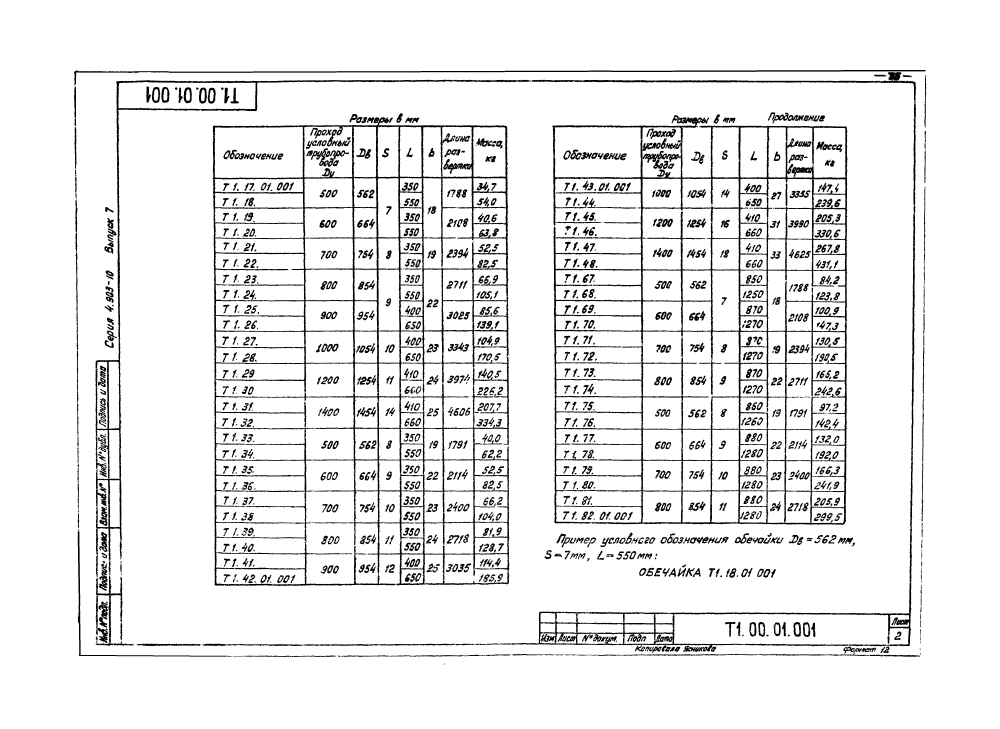 Т1.00.01.001
Серия 4.903-10 Выпуск 7
Размеры в мм
Обозначение | Проход условный трубопро-вода Dу | Dв | S | L | b | Длина раз-вертки | Масса, кг
Т 1. 17. 01. 001 | 500 | 562 | 7 | 350 | 18 | 1788 | 34,7
Т 1. 18. | 550 | 54,0
Т 1. 19. | 600 | 664 | 350 | 2108 | 40,6
Т 1. 20. | 550 | 63,8
Т 1. 21. | 700 | 754 | 8 | 350 | 19 | 2394 | 52,5
Т 1. 22. | 550 | 82,5
Т 1. 23. | 800 | 854 | 9 | 350 | 22 | 2711 | 66,9
Т 1. 24. | 550 | 105,1
Т 1. 25. | 900 | 954 | 400 | 3025 | 85,6
Т 1. 26. | 650 | 139,1
Т 1. 27. | 1000 | 1054 | 10 | 400 | 23 | 3343 | 104,9
Т 1. 28. | 650 | 170,5
Т 1. 29 | 1200 | 1254 | 11 | 410 | 24 | 3974 | 140,5
Т 1. 30 | 660 | 226,2
Т 1. 31. | 1400 | 1454 | 14 | 410 | 25 | 4606 | 207,7
Т 1. 32. | 660 | 334,3
Т 1. 33. | 500 | 562 | 8 | 350 | 19 | 1791 | 40,0
Т 1. 34. | 550 | 62,2
Т 1. 35. | 600 | 664 | 9 | 350 | 22 | 2114 | 52,5
Т 1. 36. | 550 | 82,5
Т 1. 37. | 700 | 754 | 10 | 350 | 23 | 2400 | 66,2
Т 1. 38 | 550 | 104,0
Т 1. 39. | 800 | 854 | 11 | 350 | 24 | 2718 | 81,9
Т 1. 40. | 550 | 128,7
Т 1. 41. | 900 | 954 | 12 | 400 | 25 | 3035 | 114,4
Т 1. 42. 01. 001 | 650 | 185,9
Размеры в мм Продолжение
Обозначение | Проход условный трубопро-вода Dу | Dв | S | L | b | Длина раз-вертки | Масса, кг
Т 1. 43. 01. 001 | 1000 | 1054 | 14 | 400 | 27 | 3355 | 147,4
Т 1. 44. | 650 | 239,6
Т 1. 45. | 1200 | 1254 | 16 | 410 | 31 | 3990 | 205,3
Т 1. 46. | 660 | 330,6
Т 1. 47. | 1400 | 1454 | 18 | 410 | 33 | 4625 | 267,8
Т 1. 48. | 660 | 431,1
Т 1. 67. | 500 | 562 | 7 | 850 | 18 | 1788 | 84,2
Т 1. 68. | 1250 | 123,8
Т 1. 69. | 600 | 664 | 870 | 2108 | 100,9
Т 1. 70. | 1270 | 147,3
Т 1. 71. | 700 | 754 | 8 | 870 | 19 | 2394 | 130,5
Т 1. 72. | 1270 | 190,5
Т 1. 73. | 800 | 854 | 9 | 870 | 22 | 2711 | 165,2
Т 1. 74. | 1270 | 242,6
Т 1. 75. | 500 | 562 | 8 | 860 | 19 | 1791 | 97,2
Т 1. 76. | 1260 | 142,4
Т 1. 77. | 600 | 664 | 9 | 880 | 22 | 2114 | 132,0
Т 1. 78. | 1280 | 192,0
Т 1. 79. | 700 | 754 | 10 | 880 | 23 | 2400 | 166,3
Т 1. 80. | 1280 | 241,9
Т 1. 81. | 800 | 854 | 11 | 880 | 24 | 2718 | 205,9
Т 1. 82. 01. 001 | 1280 | 299,5
Пример условного обозначения обечайки Dв = 562 мм,
S = 7 мм, L = 550 мм:
ОБЕЧАЙКА Т1. 18. 01 001
Инв. № подл. Подпись и дата Взам. инв. № Инв. № дубл. Подпись и дата
Изм Лист № докум. Подп Дата
Т1. 00. 01. 001
Лист
2
Копировала Ясникова Формат 12